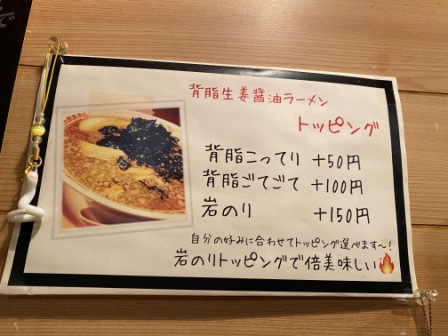 背脂生姜醤油ラーメン
トッピング
背脂こってり +50円
背脂ごてごて +100円
岩のり +150円
自分の好みに合わせてトッピング選べます〜!
岩のりトッピングで倍美味しい🔥